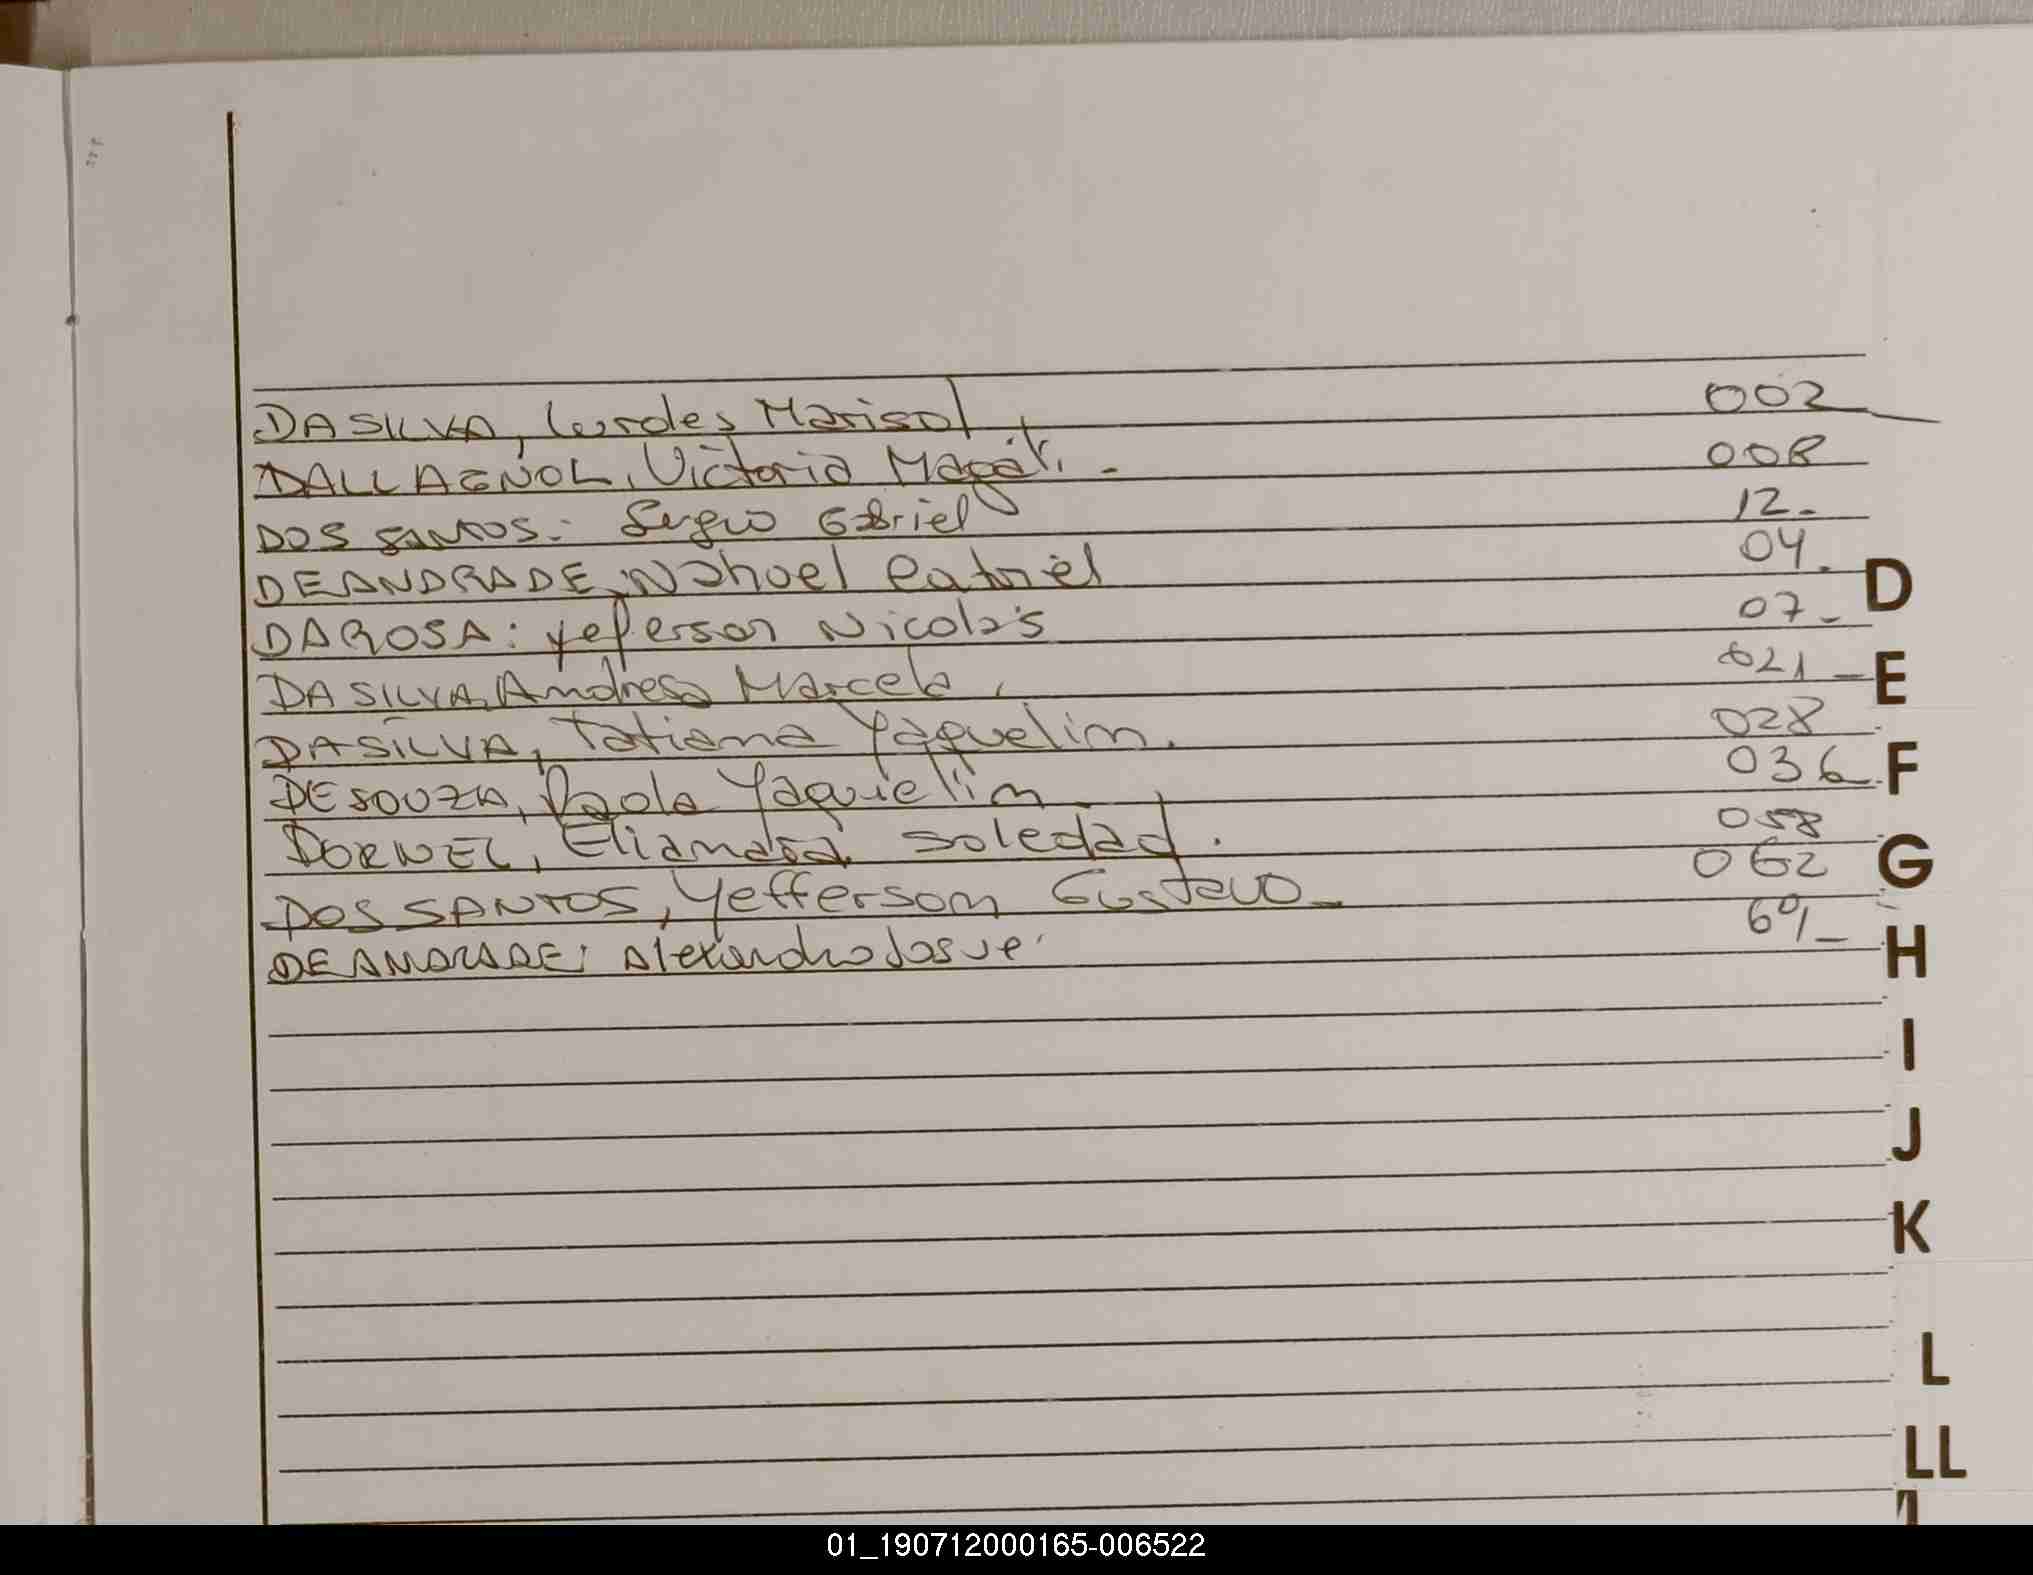 DA SILVA, Lurdes Marisol 002
DALL AGNOL, Victoria Magali. - 008
DOS SANTOS: Sergio Gabriel 12.
DEANDRADE, Nahuel 04.
DAROSA: yeferson Nicolás 07-
DA SILVA, Andresa Marcela. 021-
DA SILVA, Tatiana Yaquelin. 028
DE SOUZA, Paola Yaquielin 036
DORNEL, Soledad. 058
DOS SANTOS, Yefferson Gustavo- 062
DEANDRADE: Alexandro Josue
D
E
F
G
H
I
J
K
L
LL
01_190712000165-006522